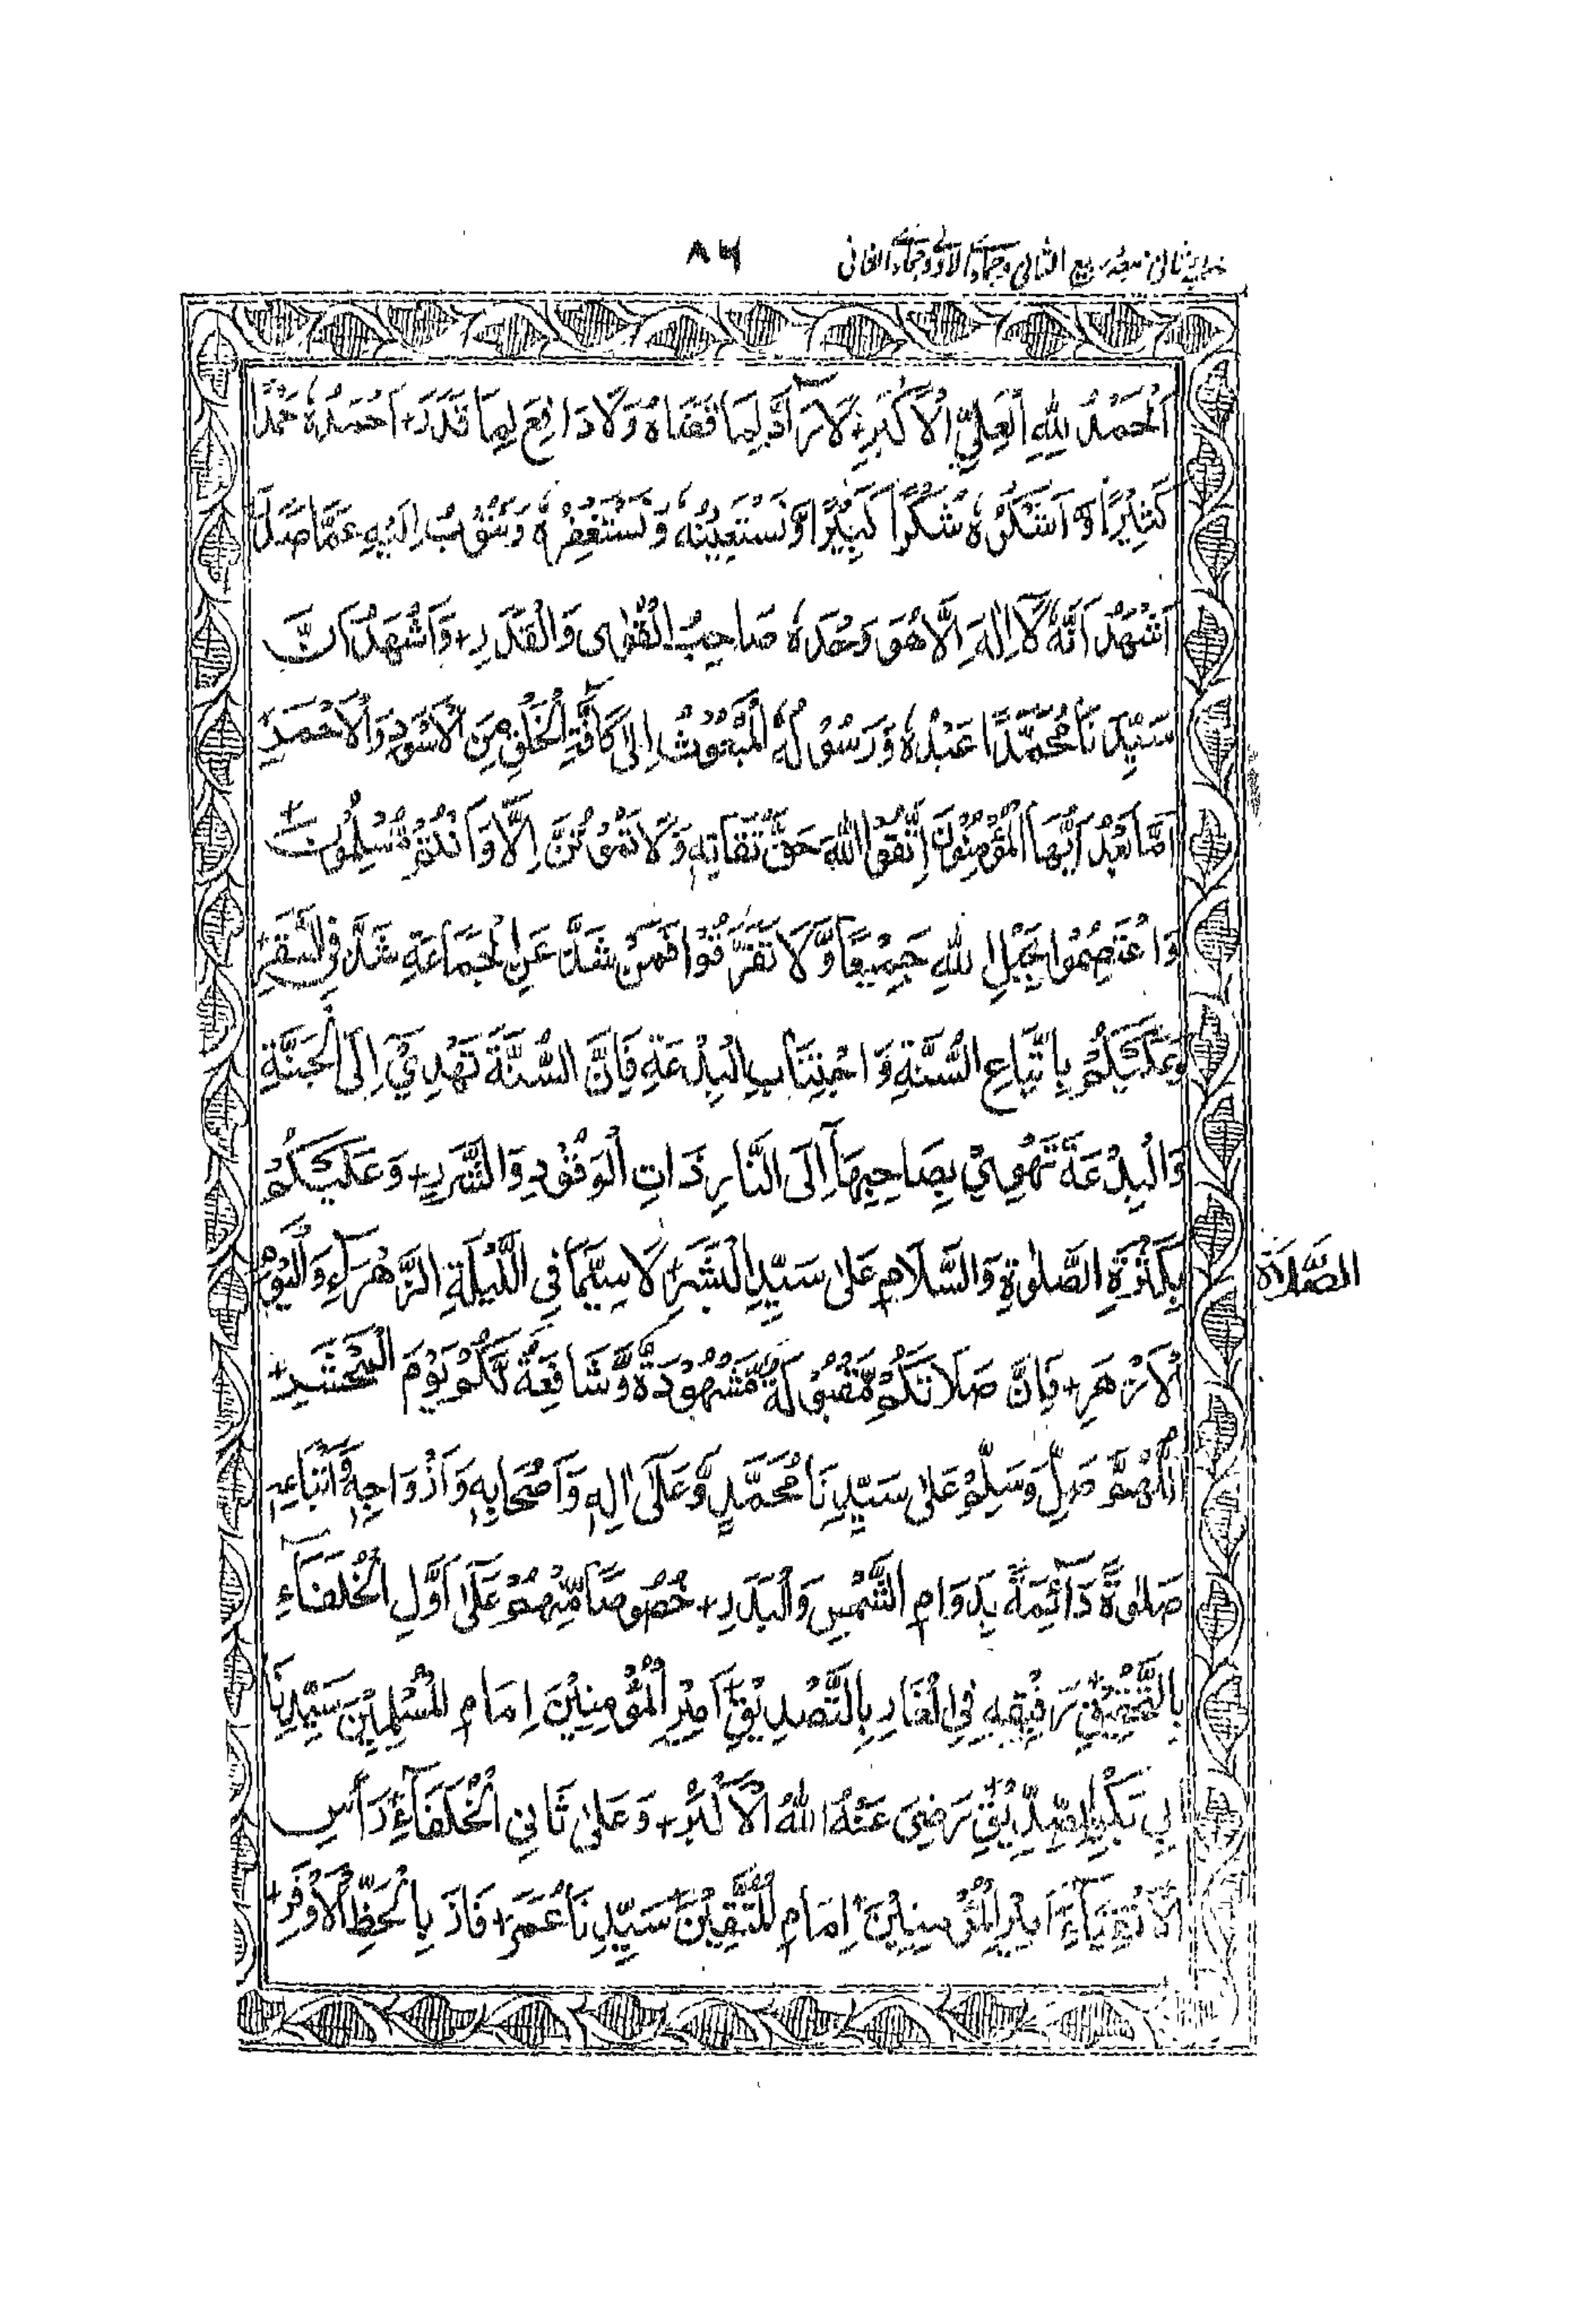 ۸۶
ربیع الثانی وجمادی الاولی وجمادی الثانی
اَلْحَمْدُ لِلّٰهِ الْعَلِيِّ الْاَكْبَرِ+ لَا رَآدَّ لِمَا قَضَاهُ وَلَا دَافِعَ لِمَا قَدَّرَ+ اَحْمَدُهٗ حَمْدًا
كَثِيْرًا وَّ اَشْكُرُهٗ شُكْرًا كَبِيْرًا وَّنَسْتَعِيْنُهٗ وَنَسْتَغْفِرُهٗ وَنَتُوْبُ اِلَيْهِ عَمَّا صَدَرَ
اَشْهَدُ اَنَّهٗ لَآ اِلٰهَ اِلَّا هُوَ وَحْدَهٗ صَاحِبُ الْقُوٰى وَالْقَدَرِ+ وَاَشْهَدُ اَنَّ
سَيِّدَنَا مُحَمَّدًا عَبْدُهٗ وَرَسُوْلُهُ الْمَبْعُوْثُ اِلٰى كَآفَّةِ الْخَلْقِ مِنَ الْاَسْوَدِ وَالْاَحْمَرِ
اَمَّا بَعْدُ اَيُّهَا الْمُؤْمِنُوْنَ اِتَّقُوا اللهَ حَقَّ تُقَاتِهٖ وَلَا تَمُوْتُنَّ اِلَّا وَاَنْتُمْ مُّسْلِمُوْنَ+
وَاعْتَصِمُوْا بِحَبْلِ اللهِ جَمِيْعًا وَّلَا تَفَرَّقُوْا فَمَنْ شَذَّ عَنِ الْجَمَاعَةِ شَذَّ فِي السَّقَرِ+
وَعَلَيْكُمْ بِاتِّبَاعِ السُّنَّةِ وَاجْتِنَابِ الْبِدْعَةِ فَاِنَّ السُّنَّةَ تَهْدِيْ اِلَى الْجَنَّةِ
وَالْبِدْعَةَ تَهْوِيْ بِصَاحِبِهَآ اِلَى النَّارِ ذَاتِ الْوَقُوْدِ وَالشَّرَرِ+ وَعَلَيْكُمْ
بِكَثْرَةِ الصَّلٰوةِ وَالسَّلَامِ عَلٰى سَيِّدِ الْبَشَرِ+ لَا سِيَّمَا فِي اللَّيْلَةِ الزَّهْرَآءِ وَالْيَوْمِ
الصَّلَاة
الْاَزْهَرِ+ فَاِنَّ صَلَاتَكُمْ مَّقْبُوْلَةٌ مَّشْهُوْدَةٌ وَّشَافِعَةٌ لَّكُمْ يَوْمَ الْمَحْشَرِ+
اَللّٰهُمَّ صَلِّ وَسَلِّمْ عَلٰى سَيِّدِنَا مُحَمَّدٍ وَّعَلٰٓى اٰلِهٖ وَاَصْحَابِهٖ وَاَزْوَاجِهٖ وَاَتْبَاعِهٖ
صَلٰوةً دَآئِمَةً بِدَوَامِ الشَّمْسِ وَالْبَدَرِ+ خُصُوْصًا مِّنْهُمْ عَلٰٓى اَوَّلِ الْخُلَفَآءِ
بِالتَّحْقِيْقِ رَفِيْقِهٖ فِي الْغَارِ بِالتَّصْدِيْقِ+ اَمِيْرِ الْمُؤْمِنِيْنَ اِمَامِ الْمُسْلِمِيْنَ سَيِّدِنَا
اَبِي بَكْرٍ الصِّدِّيْقِ رَضِيَ عَنْهُ اللهُ الْاَكْبَرُ+ وَعَلٰى ثَانِي الْخُلَفَآءِ رَاْسِ
الْاَتْقِيَآءِ اَمِيْرِ الْمُؤْمِنِيْنَ+ اِمَامِ الْمُتَّقِيْنَ سَيِّدِنَا عُمَرَ+ فَازَ بِالْحَظِّ الْاَوْفَرِ+